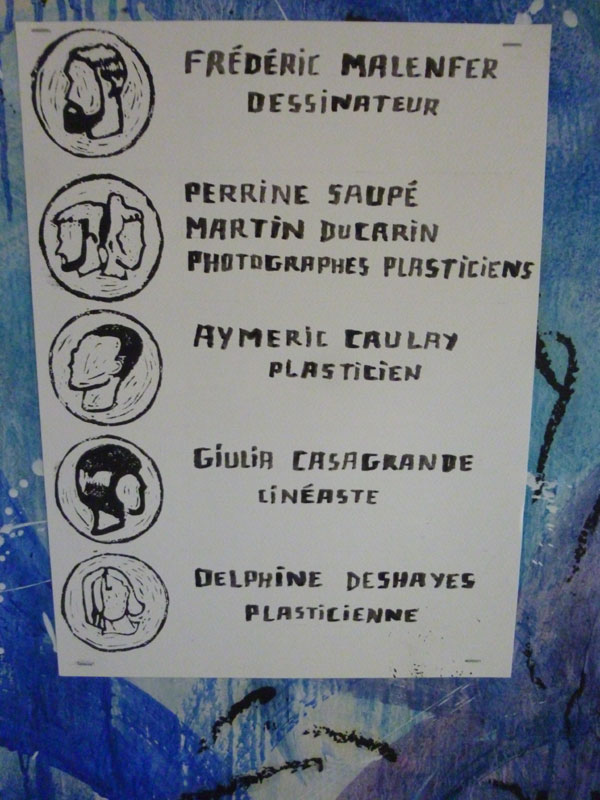 FRÉDÉRIC MALENFER
DESSINATEUR
PERRINE SAUPÉ
MARTIN DUCARIN
PHOTOGRAPHES PLASTICIENS
AYMERIC CAULAY
PLASTICIEN
GIULIA CASAGRANDE
CINÉASTE
DELPHINE DESHAYES
PLASTICIENNE